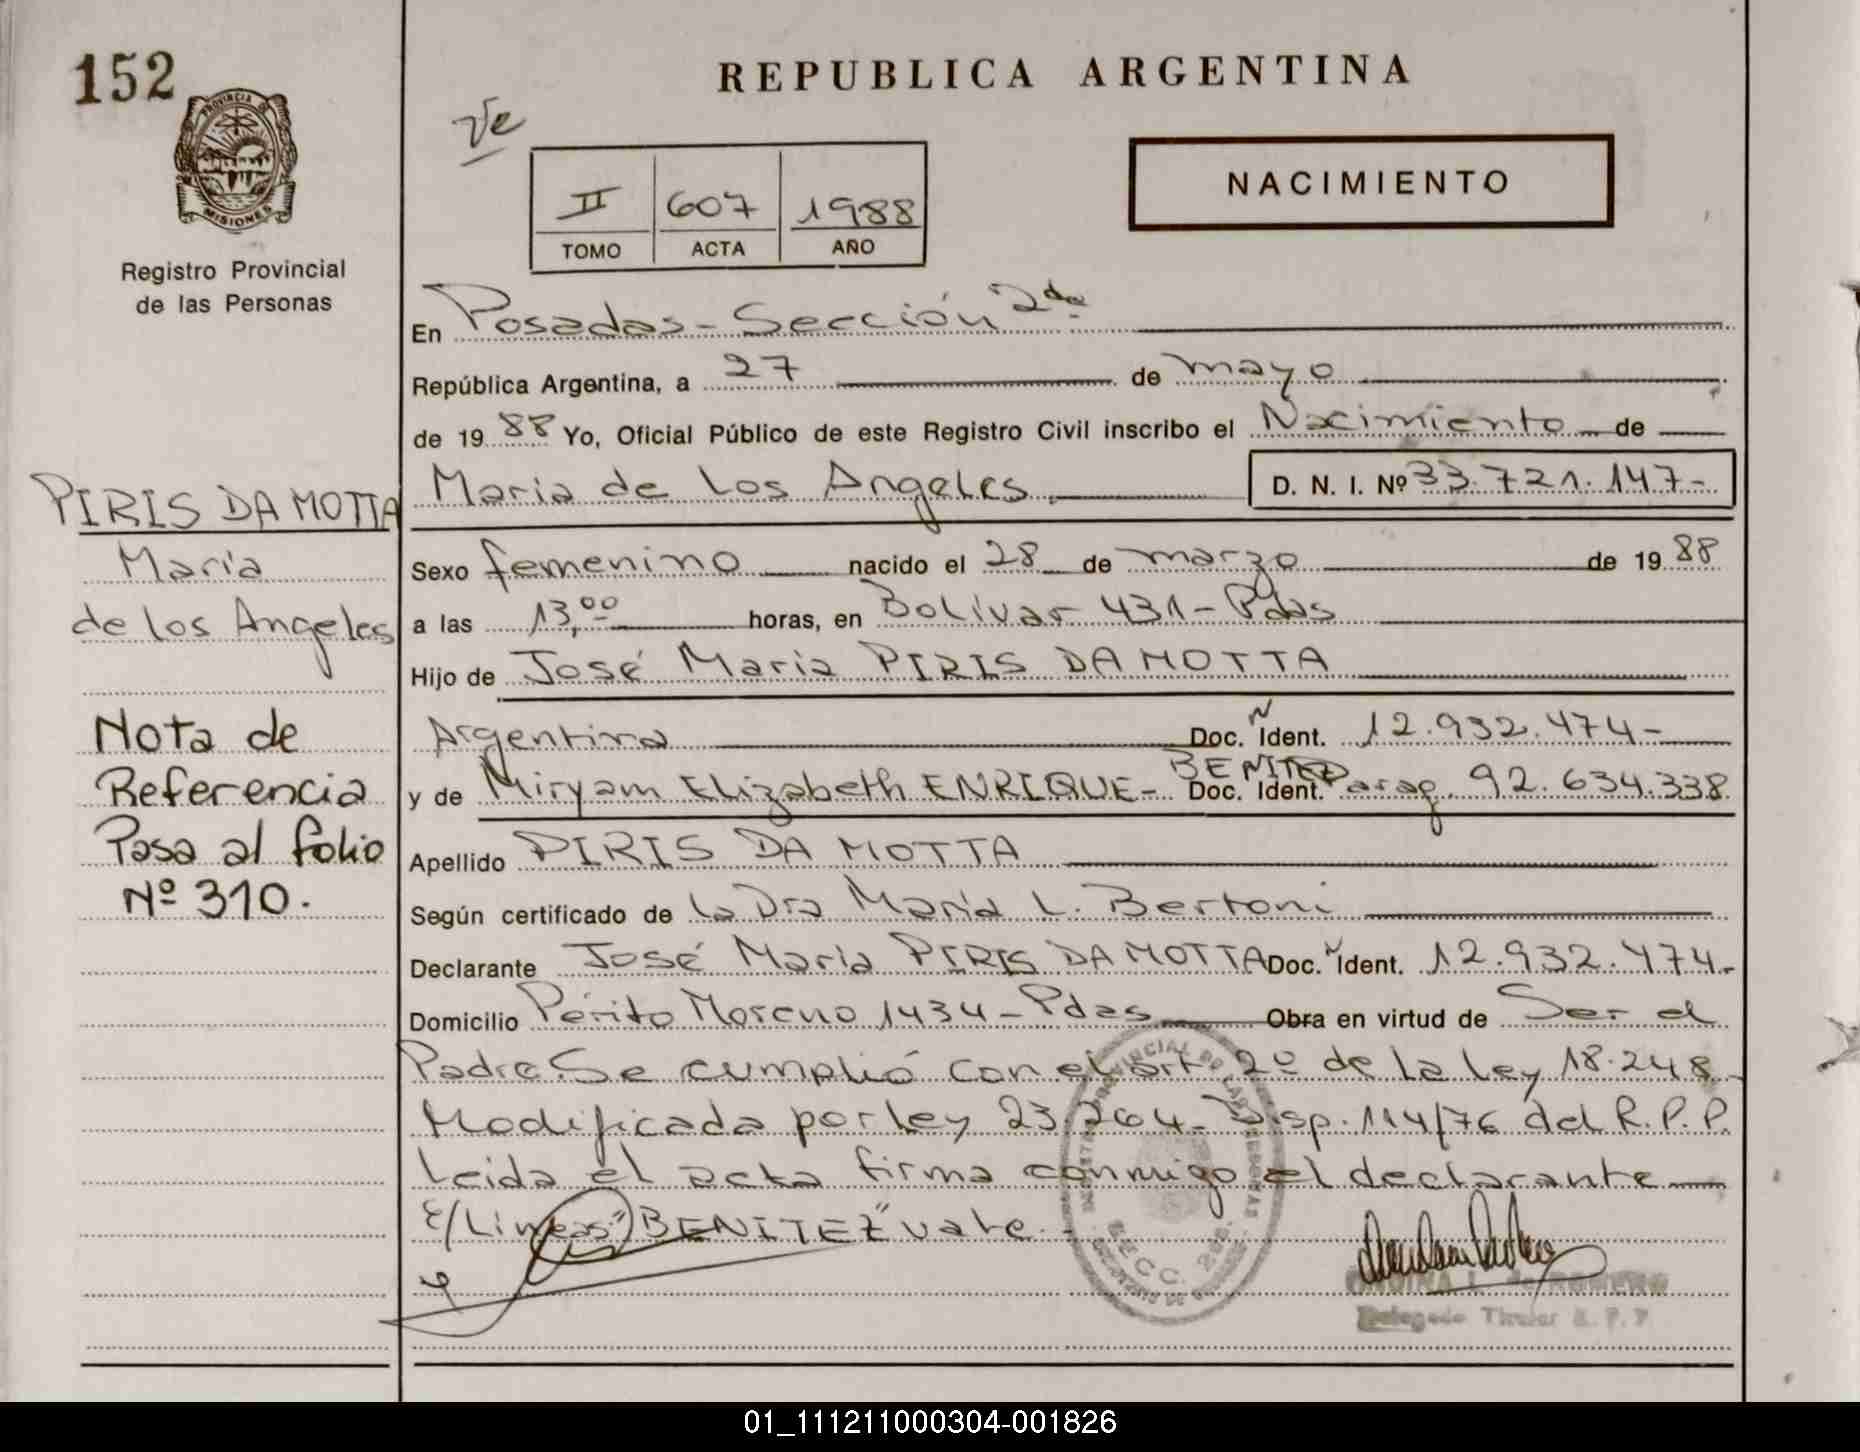 152
REPUBLICA ARGENTINA
PROVINCIA DE
MISIONES
Ve
NACIMIENTO
II 607 1988
TOMO ACTA AÑO
Registro Provincial
de las Personas
En Posadas - Sección 2da
República Argentina, a 27 de mayo
de 1988 Yo, Oficial Público de este Registro Civil inscribo el Nacimiento de
Maria de Los Angeles D. N. I. Nº 33.721.147-
PIRIS DA MOTTA
María
de los Angeles
Sexo femenino nacido el 28 de marzo de 1988
a las 13,00 horas, en Bolívar 431 - Pdas
Hijo de José Maria PIRIS DA MOTTA
Argentina Doc. Ident. 12.932.474-
BENITEZ
y de Miryam Elizabeth ENRIQUE- Doc. Ident. parag. 92.634.338
Nota de
Referencia
Pasa al folio
Nº 310.
Apellido PIRIS DA MOTTA
Según certificado de la Dra María L. Bertoni
Declarante José María PIRIS DA MOTTA Doc. Ident. 12.932.474-
Domicilio Périto Moreno 1434 - Pdas Obra en virtud de Ser el
Padre. Se cumplió con el art 2º de la Ley 18.248
Modificada por ley 23.264- Disp. 114/76 del R.P.P.
Leida el acta firma conmigo el declarante
E/Lineas "BENITEZ" vale.
DE ROMERO
Delegado Titular R. P. P
01_111211000304-001826